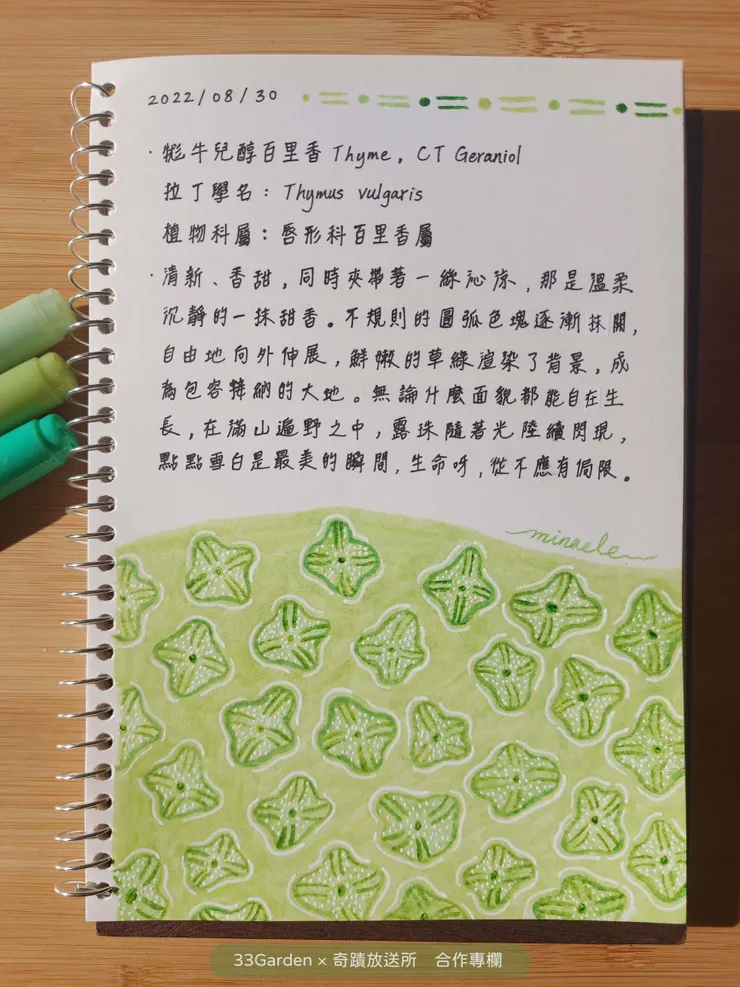 2022/08/30
·牻牛兒醇百里香 Thyme, CT Geraniol
拉丁學名：Thymus vulgaris
植物科屬：唇形科百里香屬
·清新、香甜，同時夾帶著一絲沁涼，那是溫柔
沉靜的一抹甜香。不規則的圓弧色塊逐漸抹開，
自由地向外伸展，鮮嫩的草綠渲染了背景，成
為包容接納的大地。無論什麼面貌都能自在生
長，在滿山遍野之中，露珠隨著光陸續閃現，
點點雪白是最美的瞬間，生命呀，從不應有侷限。
minaele
33Garden × 奇蹟放送所 合作專欄